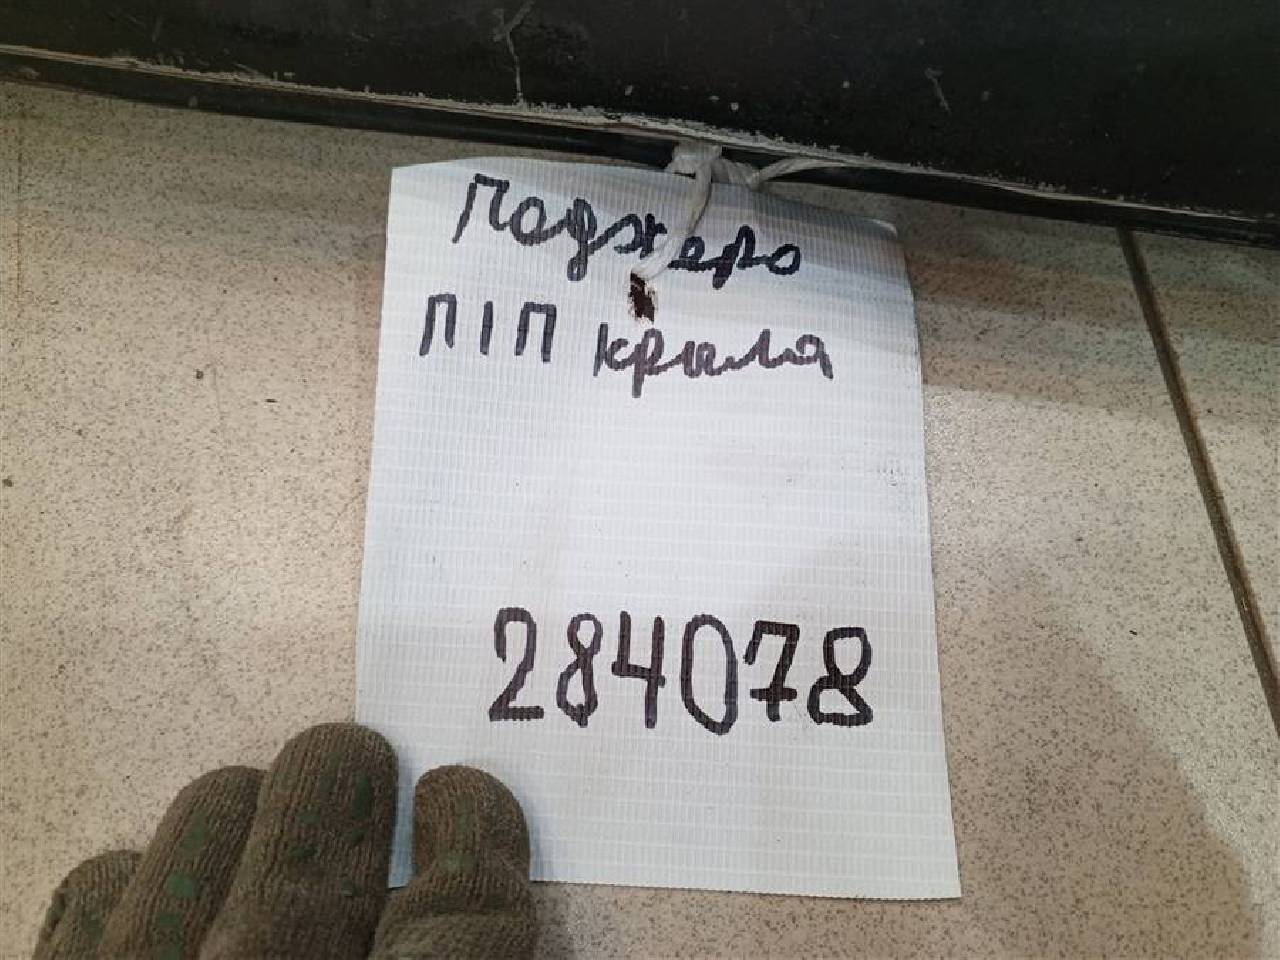 Паджеро
П|П крыла
284078